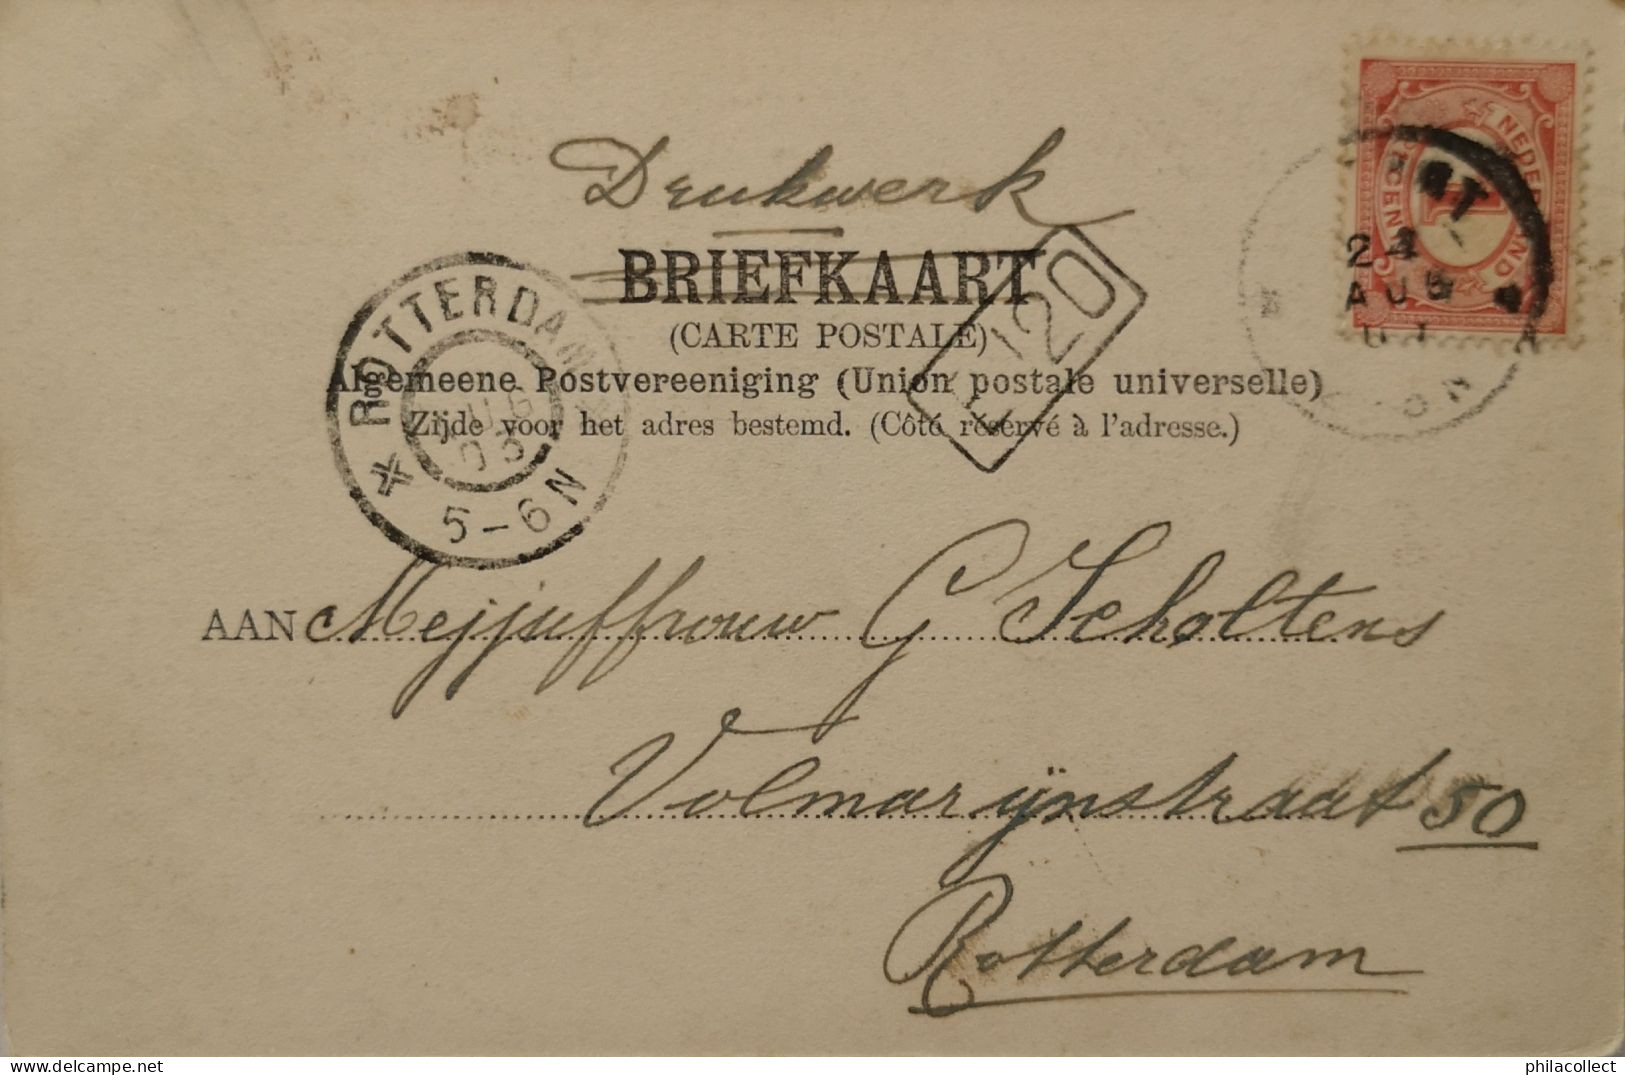 Drukwerk
BRIEFKAART
(CARTE POSTALE)
Algemeene Postvereeniging (Union postale universelle)
Zijde voor het adres bestemd. (Côté réservé à l'adresse.)
ROTTERDAM
AUG
03
5-6N
120
NEDERLAND
1
24
AUG
AAN Mejjuffrouw G Scholtens
Volmarijnstraat 50
Rotterdam
philacollect